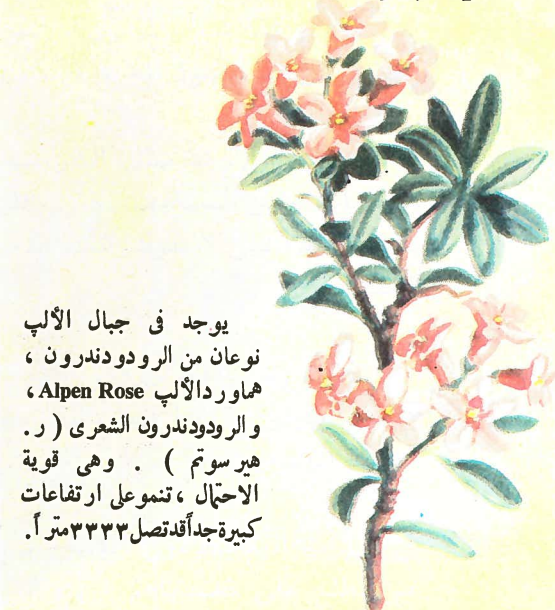 يوجد فى جبال الألپ
نوعان من الرودودندرون ،
هما ورد الألپ Alpen Rose ،
والرودودندرون الشعرى ( ر .
هيرسوتم ) . وهى قوية
الاحتمال ، تنمو على ارتفاعات
كبيرة جداً قد تصل ٣٣٣٣ متراً .